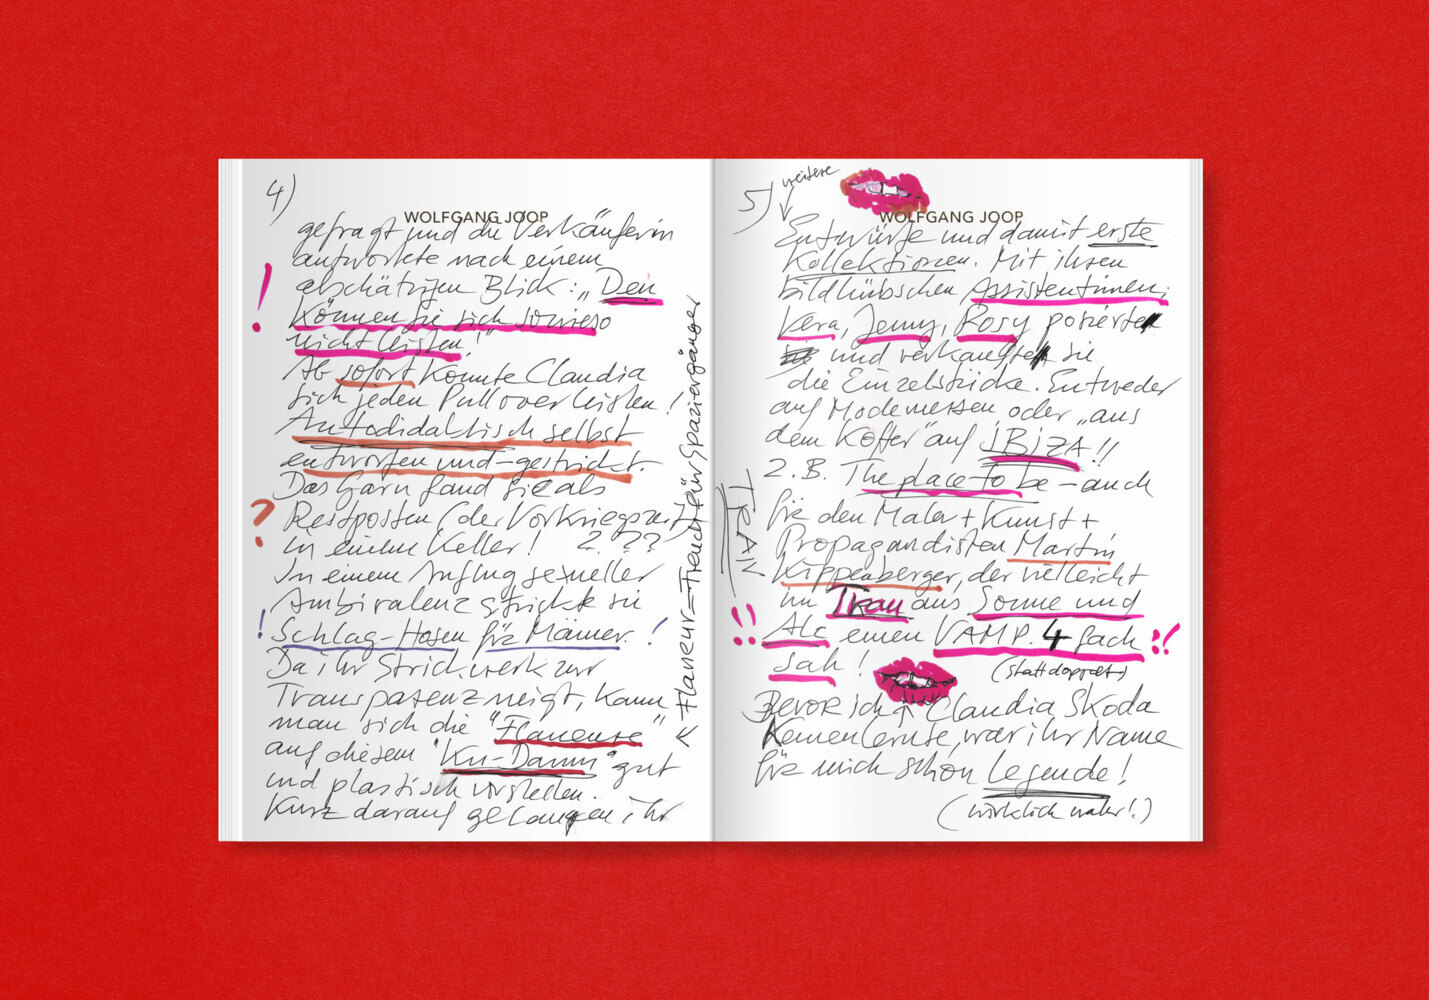 4)
WOLFGANG JOOP
gefragt und die Verkäuferin
antwortete nach einem
abschätzigen Blick: „Den
können Sie sich sowieso
nicht leisten!"
Ab sofort konnte Claudia
sich jeden Pullover leisten!
Autodidaktisch selbst
entworfen und -gestrickt.
Das Garn fand sie als
Restposten (der Vorkriegszeit)
in einem Keller! ? ??
In einem Anflug sexueller
Ambivalenz strickte sie
Schlag-Hosen für Männer!
Da ihr Strickwerk zur
Transparenz neigt, kann
man sich die "Flaneuse"
auf diesem "Ku-Damm" gut
und plastisch vorstellen.
Kurz darauf gelangen ihr
← Flaneur = French für Spaziergänger
5)
weitere
WOLFGANG JOOP
Entwürfe und damit erste
Kollektionen. Mit ihren
bildhübschen Assistentinnen,
Vera, Jenny, Rosy posierte
und verkaufte sie
die Einzelstücke. Entweder
auf Modemessen oder „aus
dem Koffer" auf iBiZA!!
Z.B. The place to be – auch
für den Maler + Kunst +
Propagandisten Martin
Kippenberger, der vielleicht
im Tran aus Sonne und
Alc einen VAMP. 4 fach
sah!
(statt doppelt)
TRAN
Bevor ich Claudia Skoda
kennenlernte, war ihr Name
für mich schon Legende!
(wirklich wahr!)